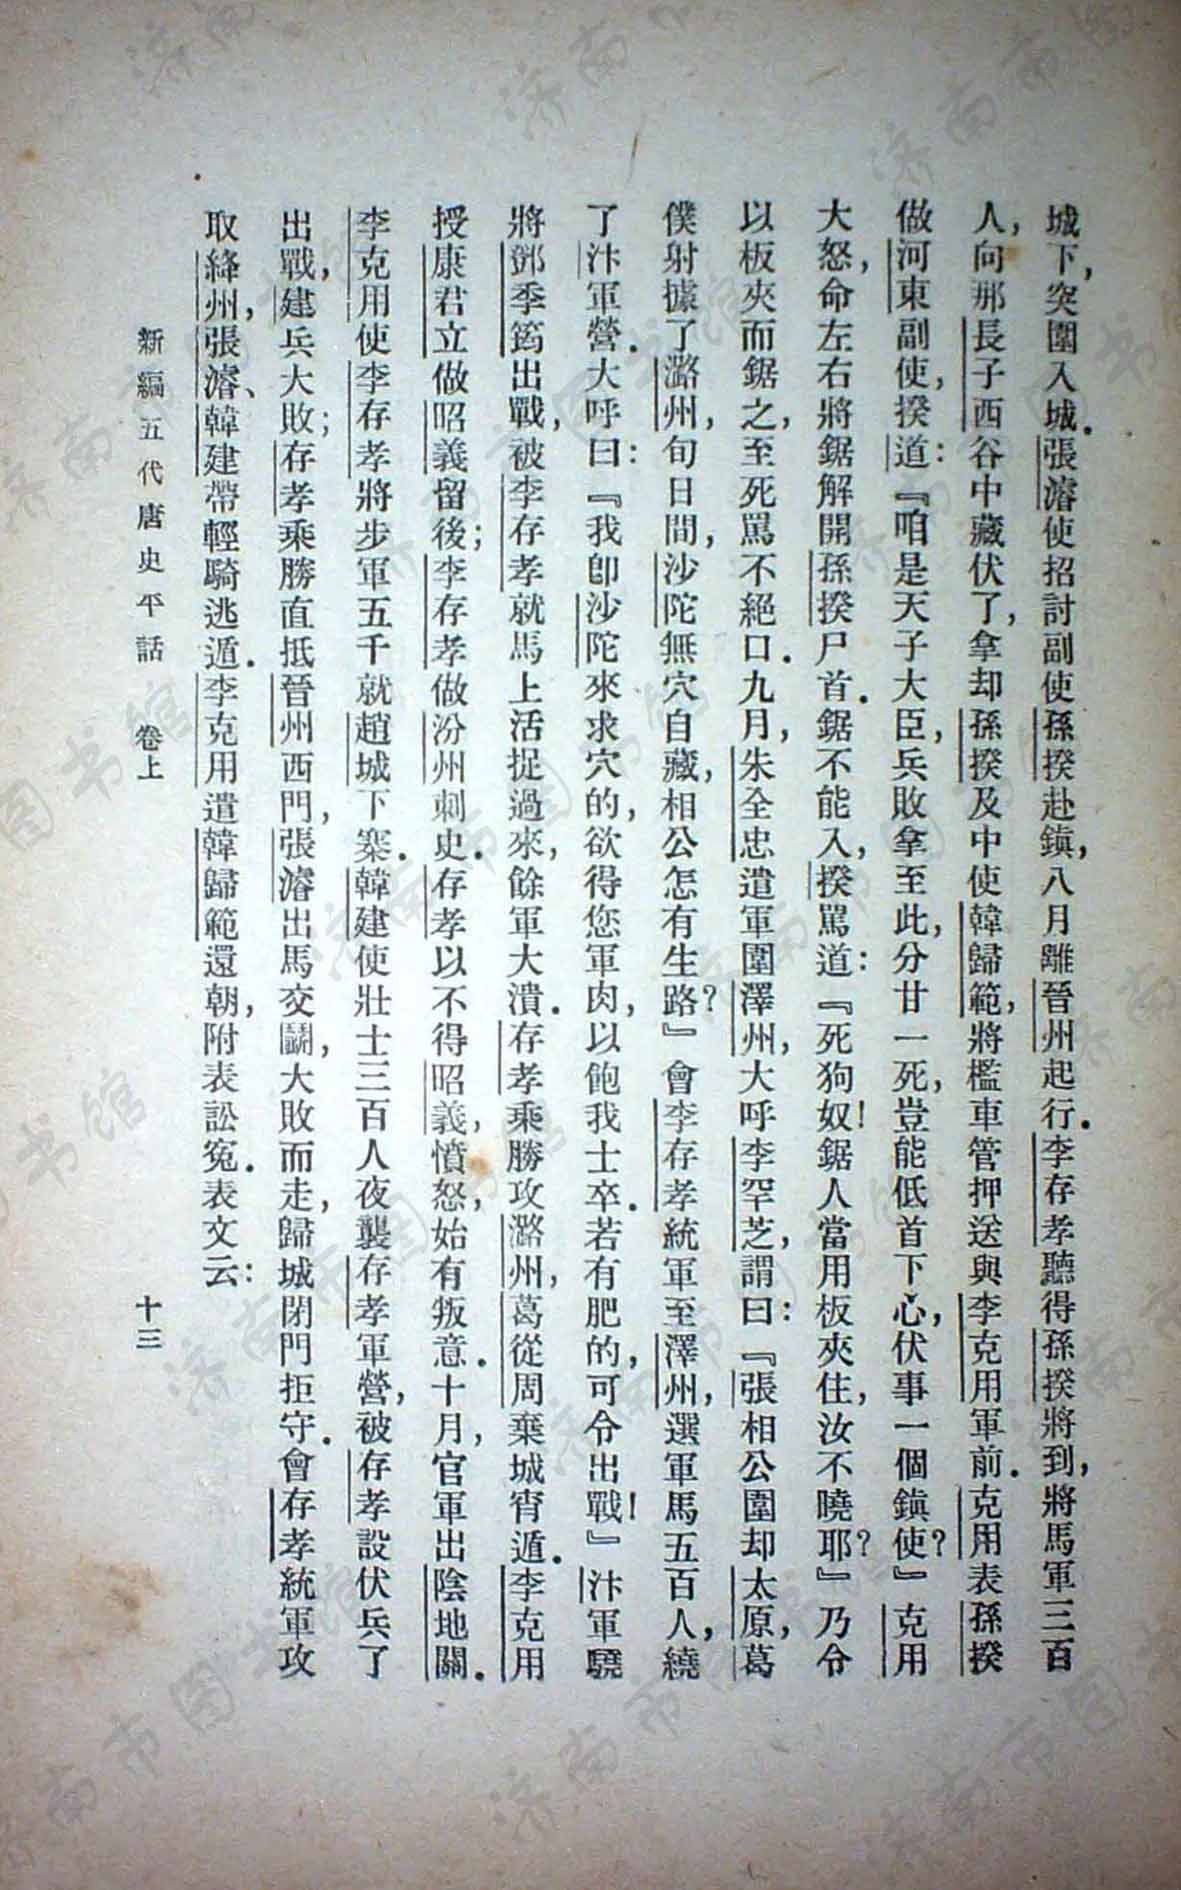 城下，突圍入城．張濬使招討副使孫揆赴鎮，八月離晉州起行．李存孝聽得孫揆將到，將馬軍三百
人，向那長子西谷中藏伏了，拿却孫揆及中使韓歸範，將檻車管押送與李克用軍前．克用表孫揆
做河東副使，揆道：『咱是天子大臣，兵敗拿至此，分甘一死，豈能低首下心，伏事一個鎮使？』克用
大怒，命左右將鋸解開孫揆尸首．鋸不能入，揆罵道：『死狗奴！鋸人當用板夾住，汝不曉耶？』乃令
以板夾而鋸之，至死罵不絕口．九月，朱全忠遣軍圍澤州，大呼李罕芝，謂曰：『張相公圍却太原，葛
僕射據了潞州，旬日間，沙陀無穴自藏，相公怎有生路？』會李存孝統軍至澤州，選軍馬五百人，繞
了汴軍營．大呼曰：『我卽沙陀來求穴的，欲得您軍肉，以飽我士卒．若有肥的，可令出戰！』汴軍驍
將鄧季筠出戰，被李存孝就馬上活捉過來，餘軍大潰．存孝乘勝攻潞州，葛從周棄城宵遁．李克用
授康君立做昭義留後；李存孝做汾州刺史．存孝以不得昭義，憤怒，始有叛意．十月，官軍出陰地關．
李克用使李存孝將步軍五千就趙城下寨．韓建使壯士三百人夜襲存孝軍營，被存孝設伏兵了
出戰，建兵大敗；存孝乘勝直抵晉州西門，張濬出馬交鬭，大敗而走，歸城閉門拒守．會存孝統軍攻
取絳州，張濬、韓建帶輕騎逃遁．李克用遣韓歸範還朝，附表訟寃．表文云：
新編五代唐史平話 卷上 十三
济南市图书馆